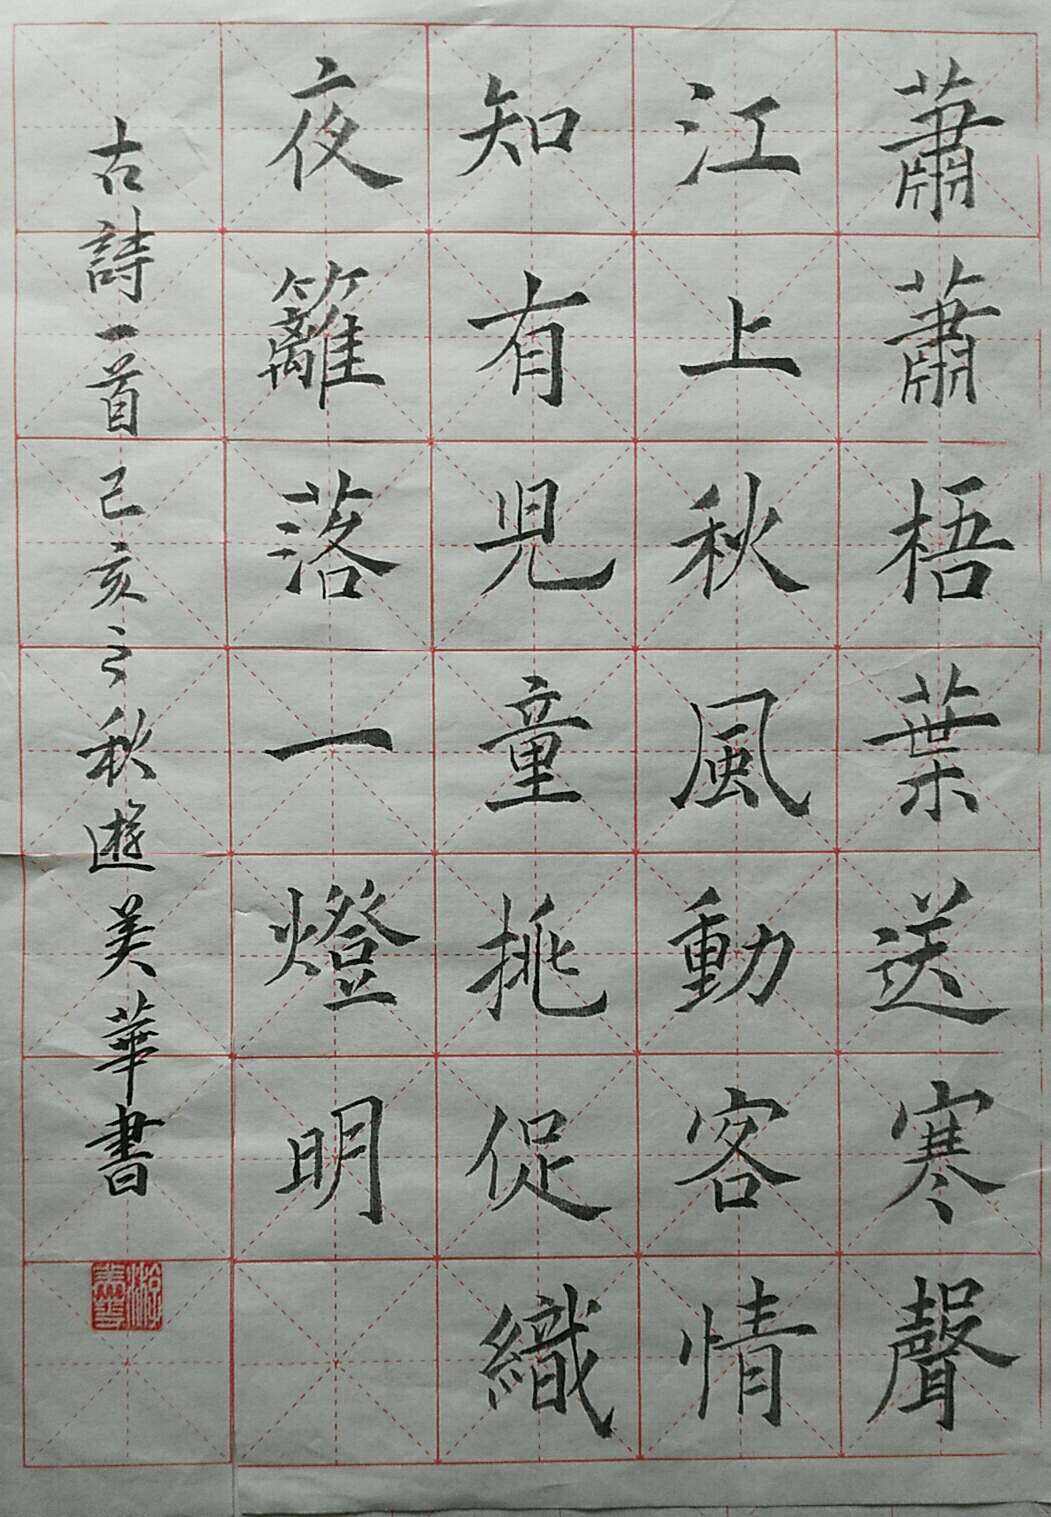 蕭蕭梧葉送寒聲
江上秋風動客情
知有兒童挑促織
夜籬落一燈明
古詩一首己亥之秋遊美華書